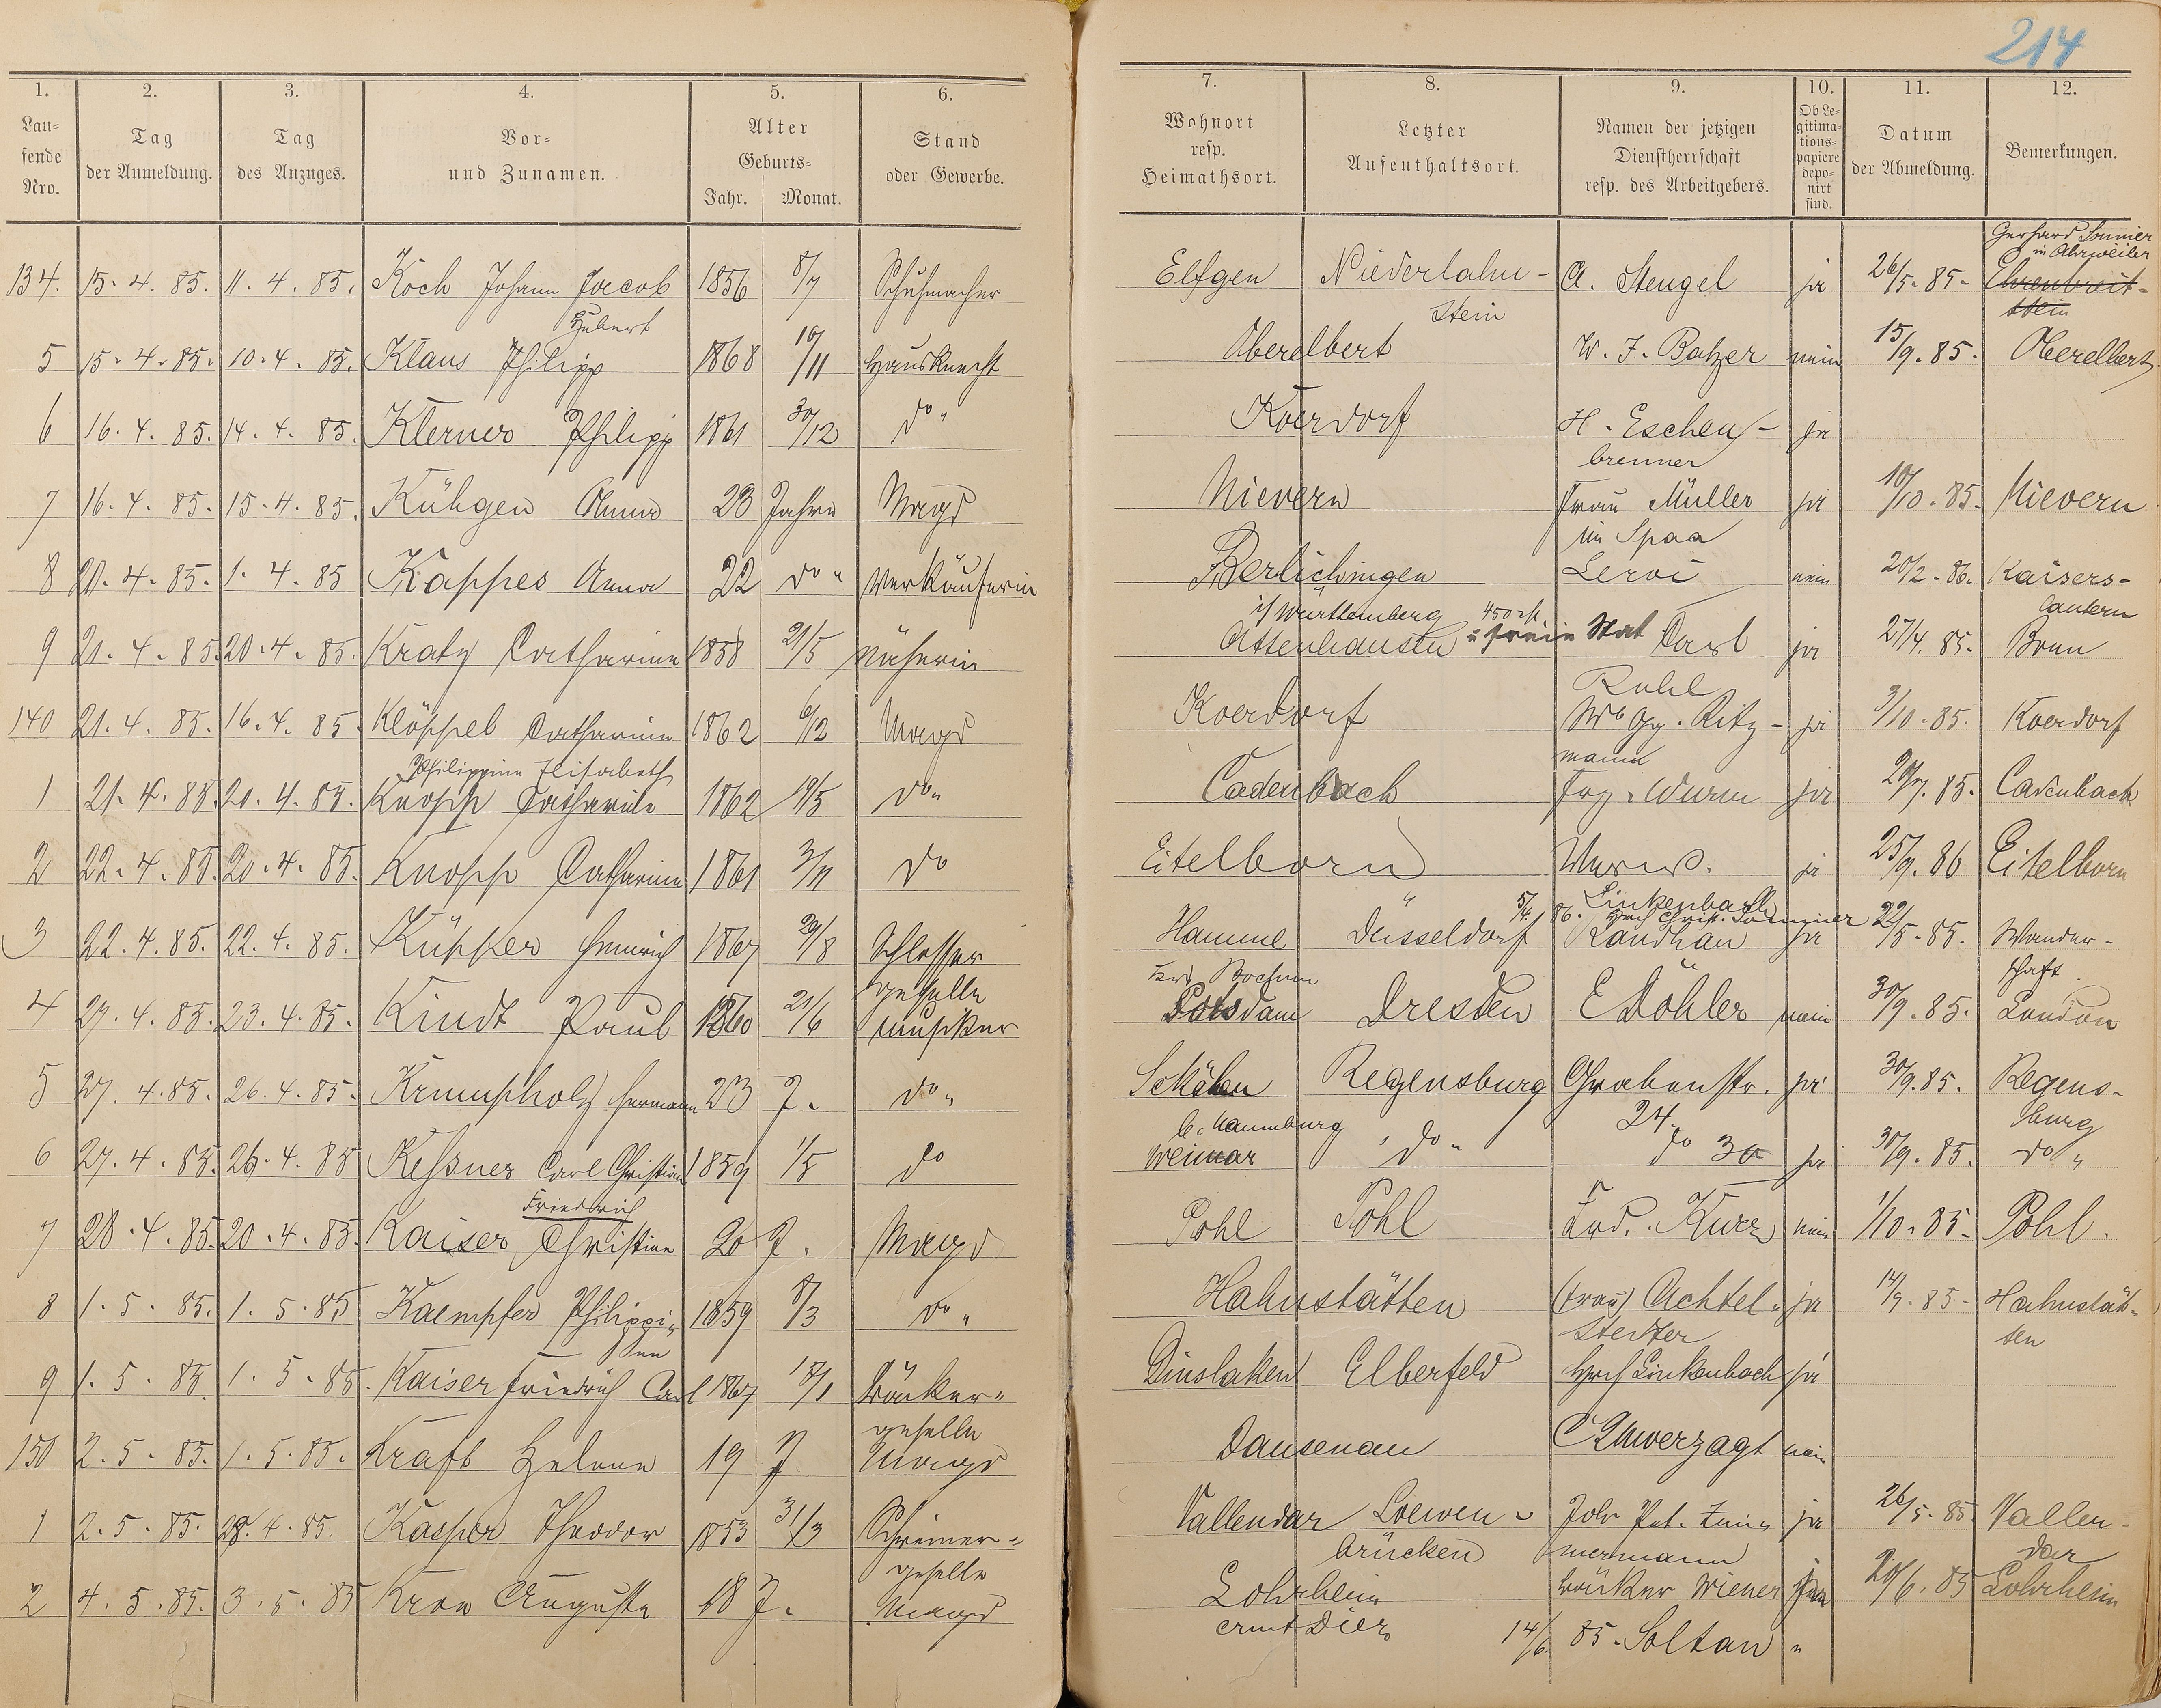 214
1. 2. 3. 4. 5. 6. 7. 8. 9. 10. 11. 12.
Lau-
fende
Nro.
Tag
der Anmeldung.
Tag
des Anzuges.
Vor-
und Zunamen.
Alter
Geburts-
Jahr. Monat.
Stand
oder Gewerbe.
Wohnort
resp.
Heimathsort.
Letzter
Aufenthaltsort.
Namen der jetzigen
Dienstherrschaft
resp. des Arbeitgebers.
Ob Le-
gitima-
tions-
papiere
depo-
nirt
sind.
Datum
der Abmeldung.
Bemerkungen.
Gerhard Sonnier
in Ahrweiler
134. 15. 4. 85. 11. 4. 85. Koch Johann Jacob 1856 8/7 Schuhmacher Elfgen Niederlahn- A. Stengel ja 26/5. 85. Ehrenbreit-
Hubert stein stein
5 15. 4. 85. 10. 4. 85. Klaus Philipp 1868 10/11 Hausknecht Oberelbert W. J. Balzer nein 15/9. 85. Oberelbert
6 16. 4. 85. 14. 4. 85. Klerner Philipp 1861 30/12 do " Koerdorf H. Eschen- ja
brenner
7 16. 4. 85. 15. 4. 85. Kühgen Anna 23 Jahre Magd Nievern Frau Müller ja 10/10. 85. Nievern
im Spaa
8 21. 4. 85. 1. 4. 85 Kappes Anna 22 do " Verkäuferin Berlichingen Leroi nein 20/2. 86. Kaisers-
i/ Württemberg 450 lautern
9 21. 4. 85. 20. 4. 85. Kratz Catharine 1858 21/5 Näherin Attenhausen Carl ja 27/4. 85. Bonn
Ruhl
140 21. 4. 85. 16. 4. 85. Klöppel Catharine 1862 6/12 Magd Koerdorf Wb Gg. Ritz- ja 3/10. 85. Koerdorf
Philippine Elisabeth mann
1 21. 4. 85. 20. 4. 85. Knopp Catharine 1862 19/5 do " Cadenbach Frz. Wurm ja 29/7. 85. Cadenbach
2 22. 4. 85. 20. 4. 85. Knopp Catharine 1861 3/11 do Eitelborn ja 25/9. 86 Eitelborn
Linkenbach
5/4 86. Hrch Christ. Sommer
3 22. 4. 85. 22. 4. 85. Küpper Heinrich 1867 29/8 Schlosser Hamme Düsseldorf Kauthan ja 22/5. 85. Wander-
geselle Krs Bochum schaft
4 27. 4. 85. 23. 4. 85. Kindt Paul 1860 21/6 Musiker Potsdam Dresden E Döhler nein 30/9. 85. London
5 27. 4. 85. 26. 4. 85. Krumpholz Hermann 23 J. do " Regensburg Grabenstr. ja 30/9. 85. Regens-
b. Naumburg 24. burg
6 27. 4. 85. 26. 4. 85 Keßner Carl Christian 1859 1/5 do Weimar do " do 30 ja 30/9. 85. do "
Friedrich
7 28. 4. 85. 20. 4. 85. Kaiser Christine 20 J. Magd Pohl Pohl Frd. Kurz nein 1/10. 85. Pohl.
8 1. 5. 85. 1. 5. 85 Kaempfer Philippi- 1859 8/3 do " Hahnstätten (Frau) Achtel- ja 14/9. 85. Hahnstät-
nen stedter ten
9 1. 5. 85 1. 5. 85. Kaiser Friedrich Carl 1867 15/1 Bäcker- Dinslaken Elberfeld Hrch Linkenbach ja
geselle
150 2. 5. 85. 1. 5. 85. Kraft Helene 19 J. Magd Dausenau C Unverzagt nein
1 2. 5. 85. 28. 4. 85. Kasper Theodor 1853 31/3 Schreiner- Vallendar Loewen- Joh. Pet. Zim- ja 26/5. 85 Vallen-
geselle brücken mermann dar
2 4. 5. 85. 3. 5. 85 Kron Auguste 18 J. Magd Lohrheim Bäcker Wiener 20/6. 85 Lohrheim
Amt Diez 14/6. 85. Soltau "